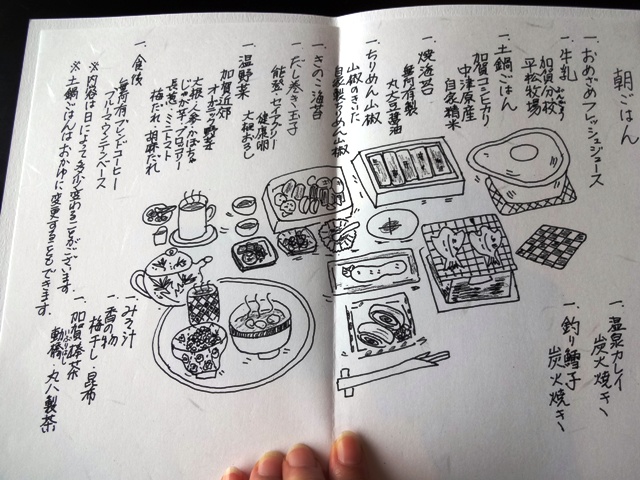 朝ごはん
一、おめざめフレッシュジュース
一、牛乳
加賀分校
平松牧場
一、土鍋ごはん
加賀コシヒカリ
中津原産
自家精米
一、焼海苔
無何有製
丸大豆醤油
一、ちりめん山椒
山椒のきいた
自家製ちりめん山椒
一、きのこ海苔
一、だし巻き玉子
能登・セイアグリー
健康卵
大根おろし
一、温野菜
加賀近郊
オーガニック野菜
大根・人参・かぼちゃ
じゃが芋・ブロッコリー
長葱・ミニトマト
梅だれ・胡麻だれ
一、食後
無何有ブレンドコーヒー
ブルーマウンテンベース
※内容は日によって多少変わることがございます。
※土鍋ごはんはおかゆに変更することもできます。
一、温泉カレイ
炭火焼き
一、釣り鱈子
炭火焼き
一、みそ汁
一、香の物
梅干し・昆布
一、加賀棒茶
動橋・丸八製茶